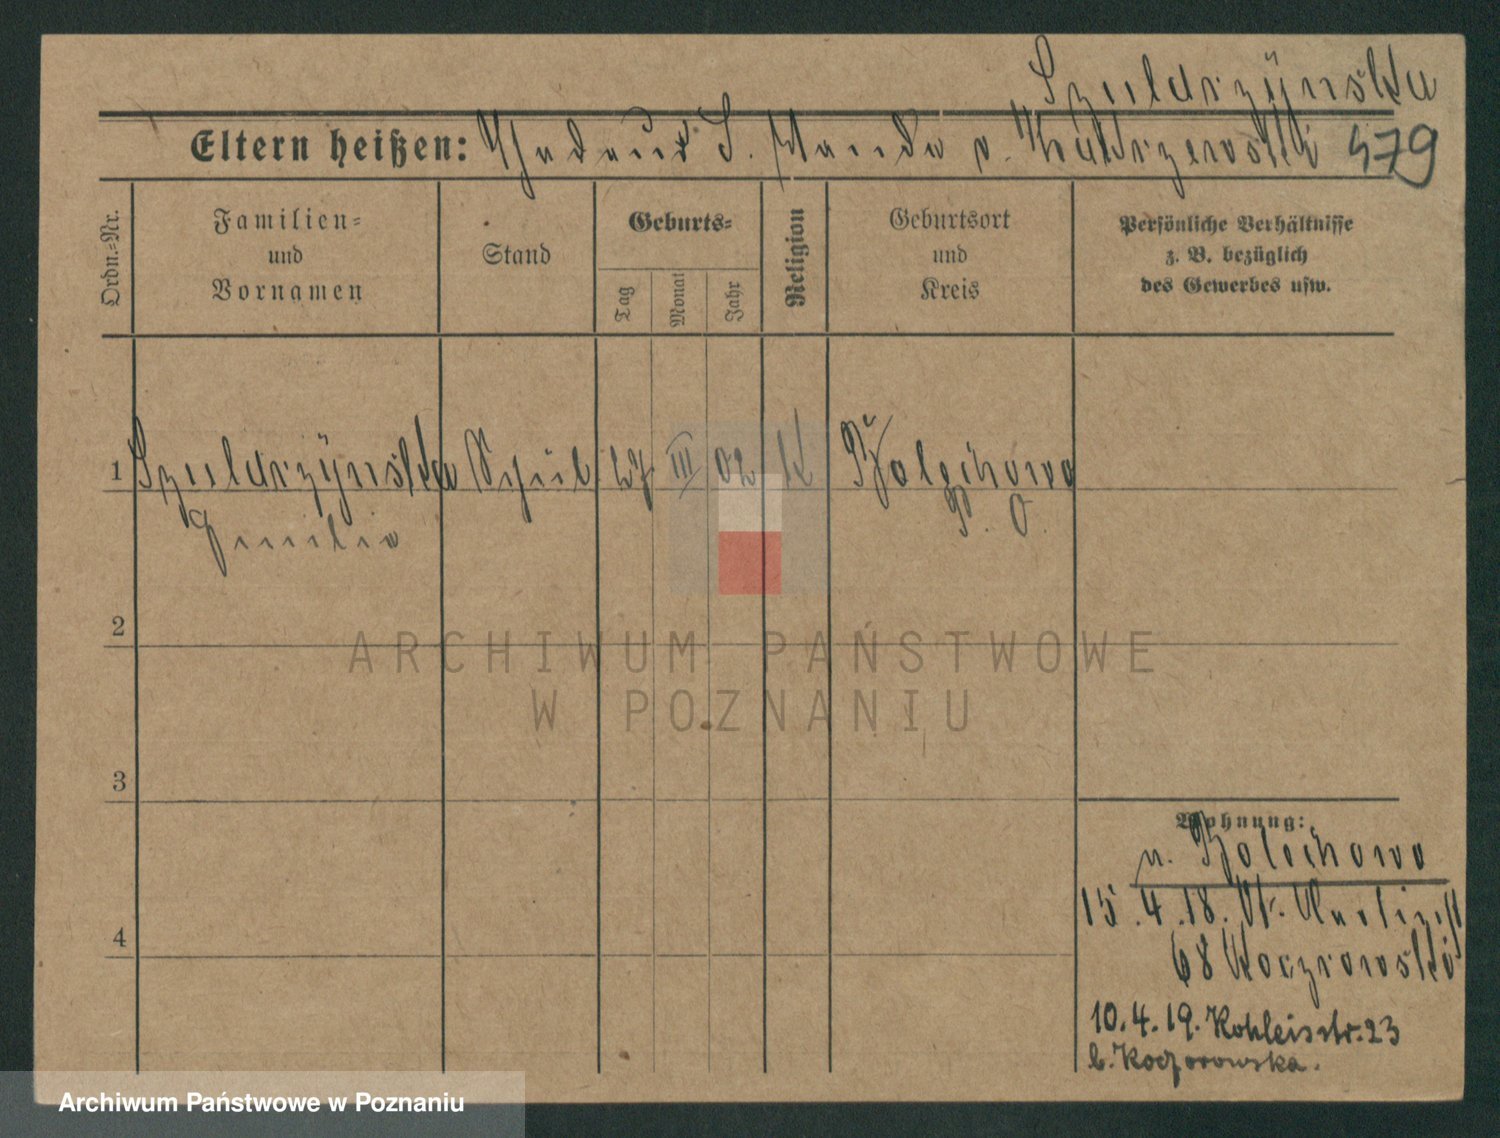 Szuldrzyńska
Eltern heißen: Thadeus S. Wanda v.
479
Ordn.-Nr.
Familien-
und
Vornamen
Stand
Geburts-
Tag
Monat
Jahr
Religion
Geburtsort
und
Kreis
Persönliche Verhältnisse
z. B. bezüglich
des Gewerbes usw.
1 Szuldrzyńska Schül. 27 III 02 K Bolechowo
Emilia P. O.
2
ARCHIWUM PAŃSTWOWE
W POZNANIU
3
4
Wohnung:
n. Bolechowo
15.4.18.
68
10.4.19. Kohleisstr. 23
b. Koczorowska.
Archiwum Państwowe w Poznaniu